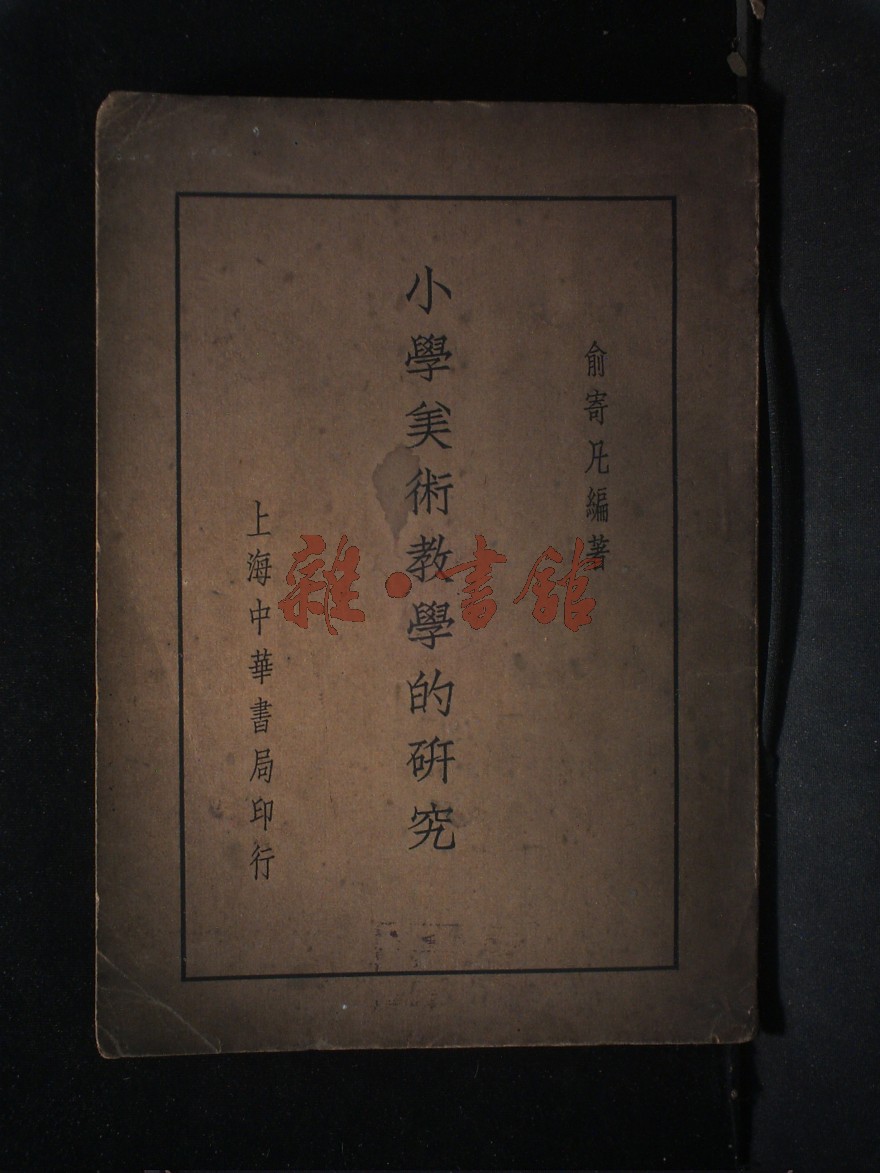 俞寄凡編著
小學美術教學的研究
上海中華書局印行
雜·書館